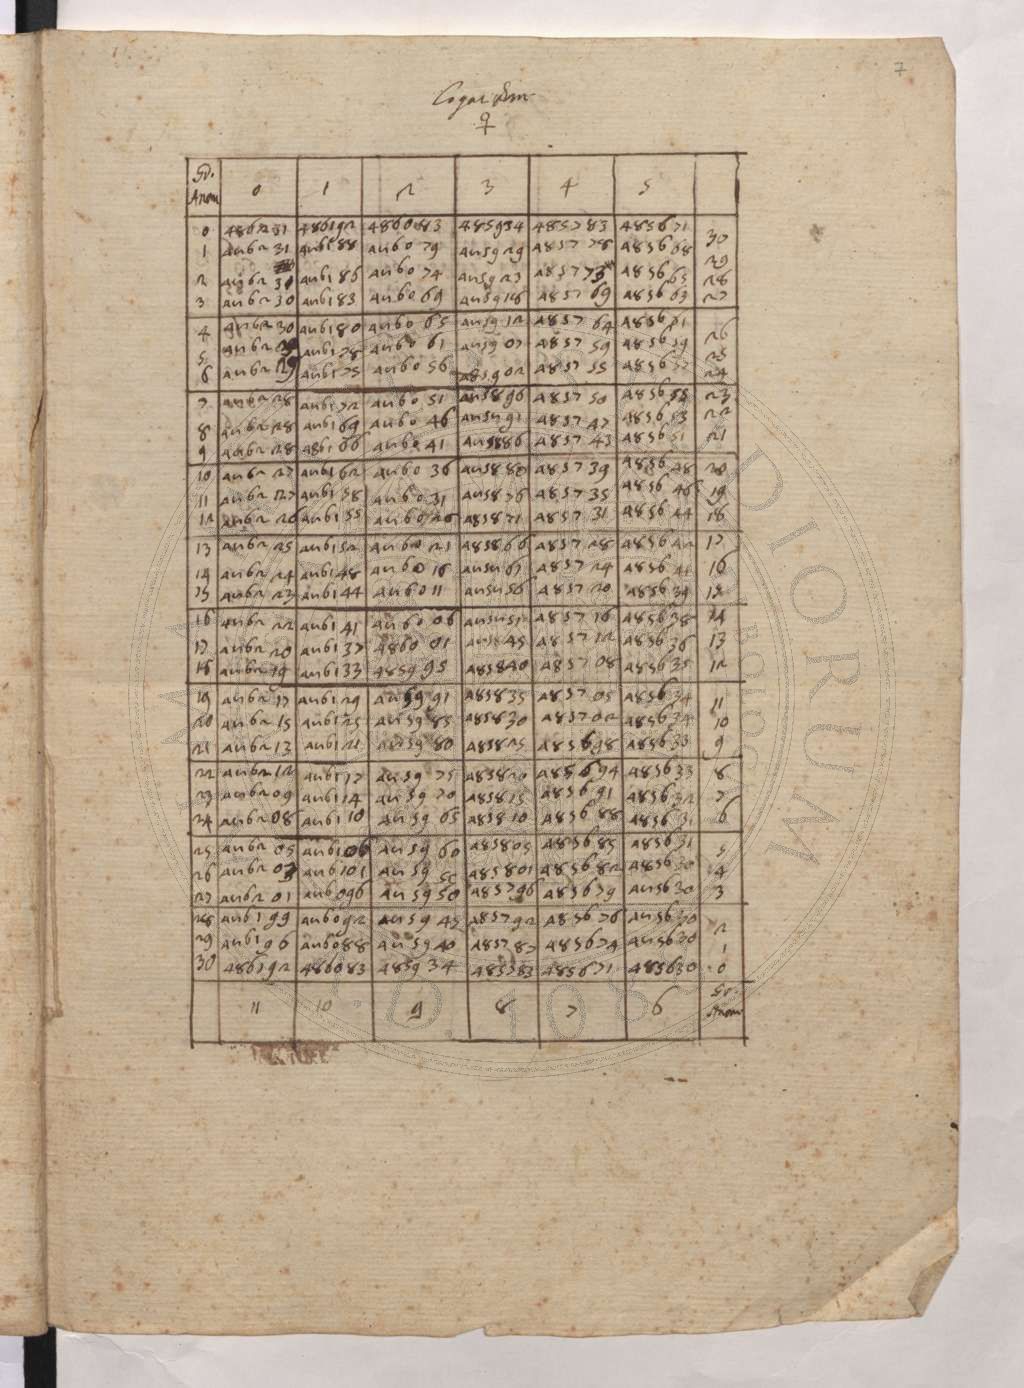 7
Logarithm
♀
Gr. Anom 0 1 2 3 4 5
0 486231 486192 486083 485934 485783 485671 30
1 486231 486188 486079 485929 485778 485668 29
2 486231 486186 486074 485923 485773 485665 28
3 486230 486183 486069 485918 485769 485663 27
4 486230 486180 486065 485912 485764 485661 26
5 486229 486178 486061 485907 485759 485659 25
6 486229 486175 486056 485902 485755 485657 24
7 486228 486172 486051 485896 485750 485655 23
8 486228 486169 486046 485891 485747 485653 22
9 486228 486166 486041 485886 485743 485651 21
10 486227 486162 486036 485880 485739 485648 20
11 486227 486158 486031 485876 485735 485646 19
12 486226 486155 486026 485871 485731 485644 18
13 486225 486152 486021 485866 485728 485642 17
14 486224 486148 486016 485861 485724 485641 16
15 486223 486144 486011 485856 485720 485639 15
16 486222 486141 486006 485851 485716 485638 14
17 486220 486137 486001 485845 485712 485636 13
18 486219 486133 485995 485840 485708 485635 12
19 486217 486129 485991 485835 485705 485634 11
20 486215 486125 485985 485830 485702 485634 10
21 486213 486121 485980 485825 485698 485633 9
22 486212 486117 485975 485820 485694 485633 8
23 486209 486114 485970 485815 485691 485632 7
24 486208 486110 485965 485810 485688 485631 6
25 486205 486106 485960 485805 485685 485631 5
26 486203 486101 485955 485801 485682 485630 4
27 486201 486096 485950 485796 485679 485630 3
28 486199 486092 485945 485792 485676 485630 2
29 486196 486088 485940 485787 485674 485630 1
30 486192 486083 485934 485783 485671 485630 0
11 10 9 8 7 6 Gr. Anom